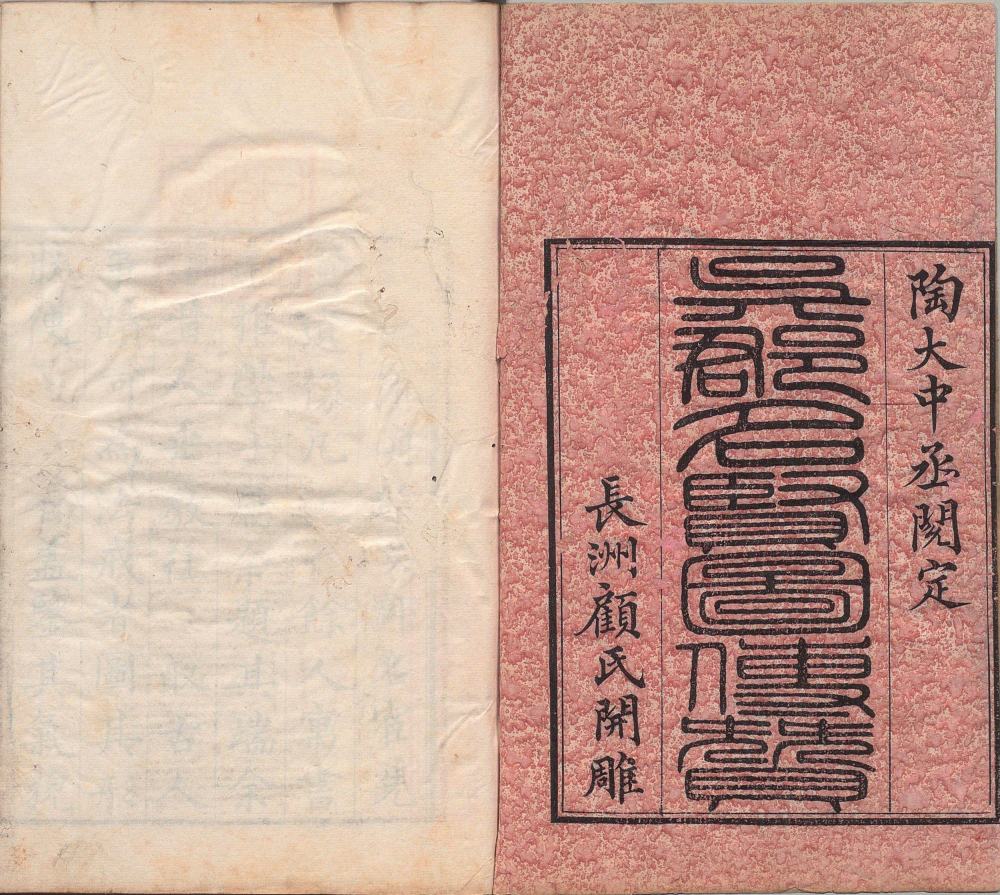 陶大中丞閱定
吳郡名賢圖傳贊
長洲顧氏開雕